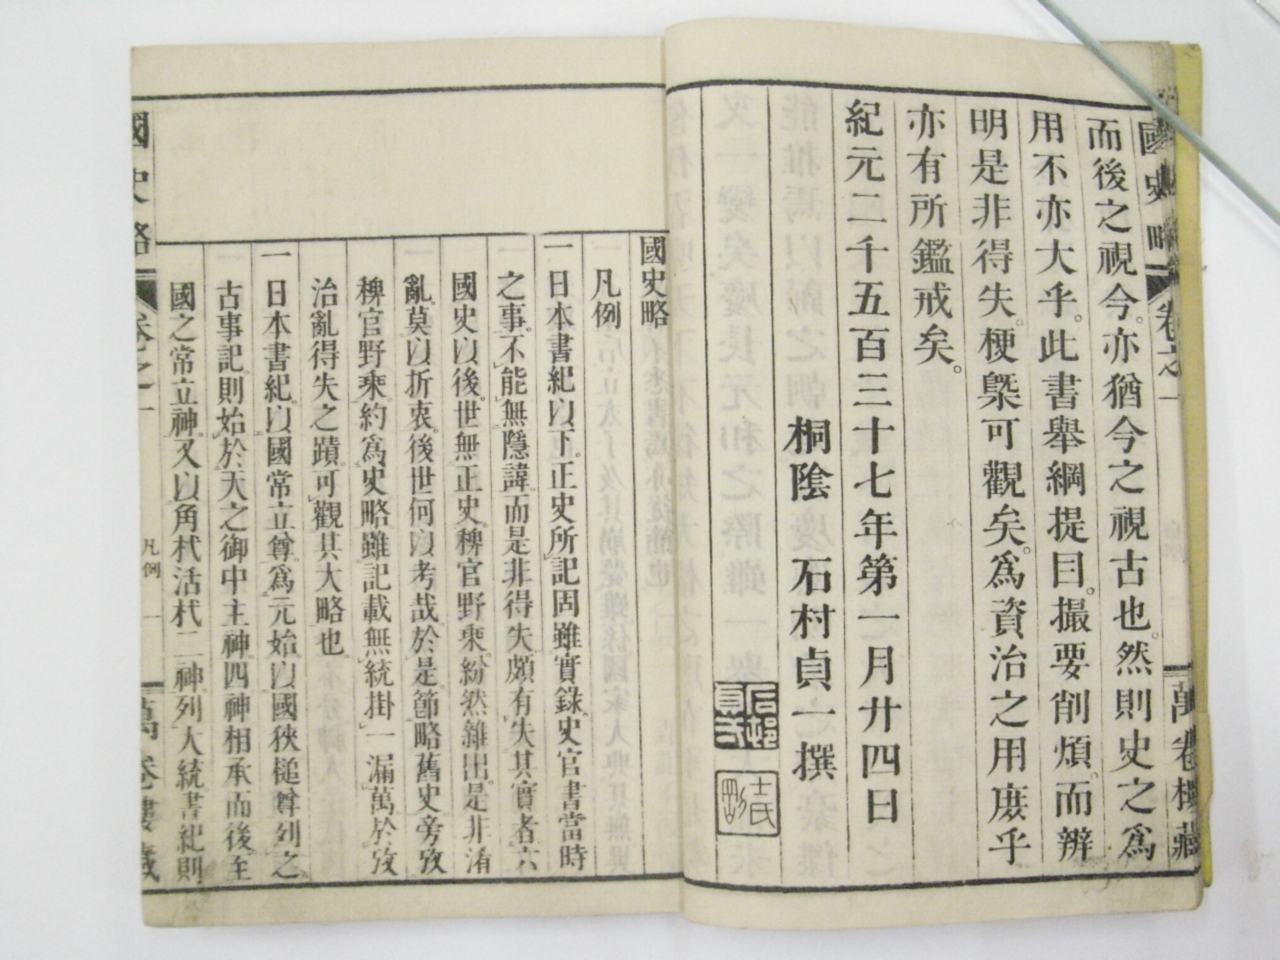 國史略 卷之一 萬卷樓藏
而後之視今。亦猶今之視古也。然則史之爲
用不亦大乎。此書舉綱提目。撮要削煩。而辨
明是非得失。梗槩可觀矣。爲資治之用庶乎
亦有所鑑戒矣。
紀元二千五百三十七年第一月廿四日
桐陰 石村貞一撰
石邨貞一
國史略
凡例
一日本書紀以下。正史所記。固雖實錄。史官書當時
之事。不能無隱諱。而是非得失。頗有失其實者。六
國史以後。世無正史。稗官野乘。紛然雜出。是非淆
亂。莫以折衷。後世何以考哉。於是節略舊史。旁攷
稗官野乘。約爲史略。雖記載無統。掛一漏萬。於攷
治亂得失之蹟。可觀其大略也
一日本書紀。以國常立尊。爲元始。以國狹槌尊列之。
古事記。則始於天之御中主神。四神相承。而後至
國之常立神。又以角杙活杙二神。列大統。書紀則
國史略 卷之一 凡例 一 萬卷樓藏